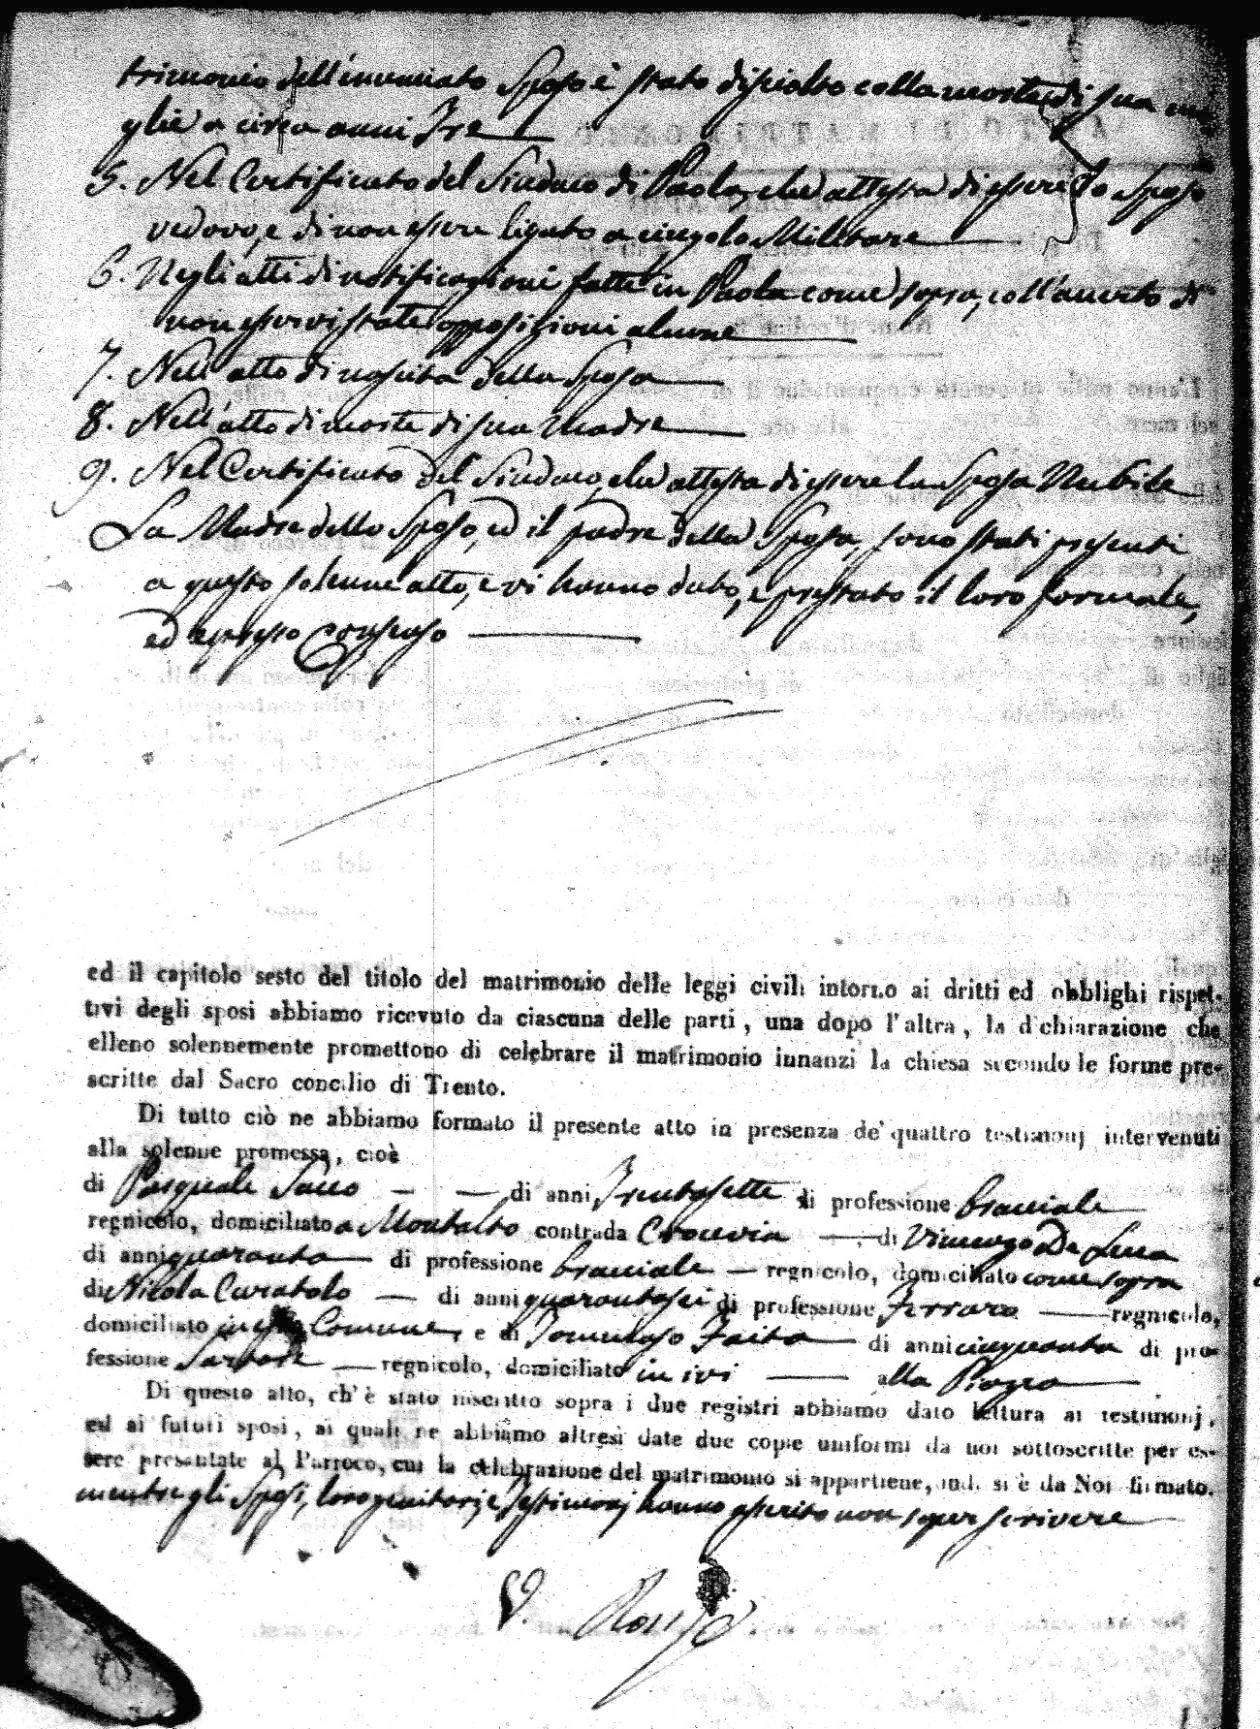 trimonio dell'enunciato Sposo è stato disciolto colla morte di sua mo
glie a circa anni Tre
5. Nel Certificato del Sindaco di Paola, che attesta di essere lo Sposo
vedovo, e di non essere ligato a cingolo Militare
6. Negli atti di notificazioni fatte in Paola come sopra, coll'acerto di
non esservi state opposizioni alcune
7. Nell'atto di nascita della Sposa
8. Nell'atto di morte di sua Madre
9. Nel Certificato del Sindaco, che attesta di essere la Sposa Nubile
La Madre dello Sposo, ed il padre della Sposa, sono stati presenti
a questo solenne atto, e vi hanno dato, e prestato il loro formale,
ed espresso Consenso
ed il capitolo sesto del titolo del matrimonio delle leggi civili intorno ai dritti ed obblighi rispet-
tivi degli sposi abbiamo ricevuto da ciascuna delle parti, una dopo l'altra, la d'chiarazione che
elleno solennemente promettono di celebrare il matrimonio innanzi la chiesa secondo le forme pre-
scritte dal Sacro concilio di Trento.
Di tutto ciò ne abbiamo formato il presente atto in presenza de' quattro testimonj intervenuti
alla solenne promessa, cioè
di Pasquale Sacco di anni Trentasette di professione bracciale
regnicolo, domiciliato a Montalto contrada Crocevia di Vincenzo De Luca
di anni quaranta di professione bracciale regnicolo, domiciliato come sopra
di Nicola Curatolo di anni quarantasei di professione Ferraro regnicolo,
domiciliato in Comune, e di Tommaso Zaita di anni cinquanta di pro-
fessione Sartore regnicolo, domiciliato in ivi alla Piazza
Di questo atto, ch'è stato inscritto sopra i due registri abbiamo dato lettura ai testimonj,
ed ai futuri sposi, ai quali ne abbiamo altresì date due copie uniformi da noi sottoscritte per es-
sere presentate al Parroco, cui la celebrazione del matrimonio si appartiene, indi si è da Noi firmato.
mentre gli Sposi, loro genitori, e Testimonj hanno asserito non saper scrivere